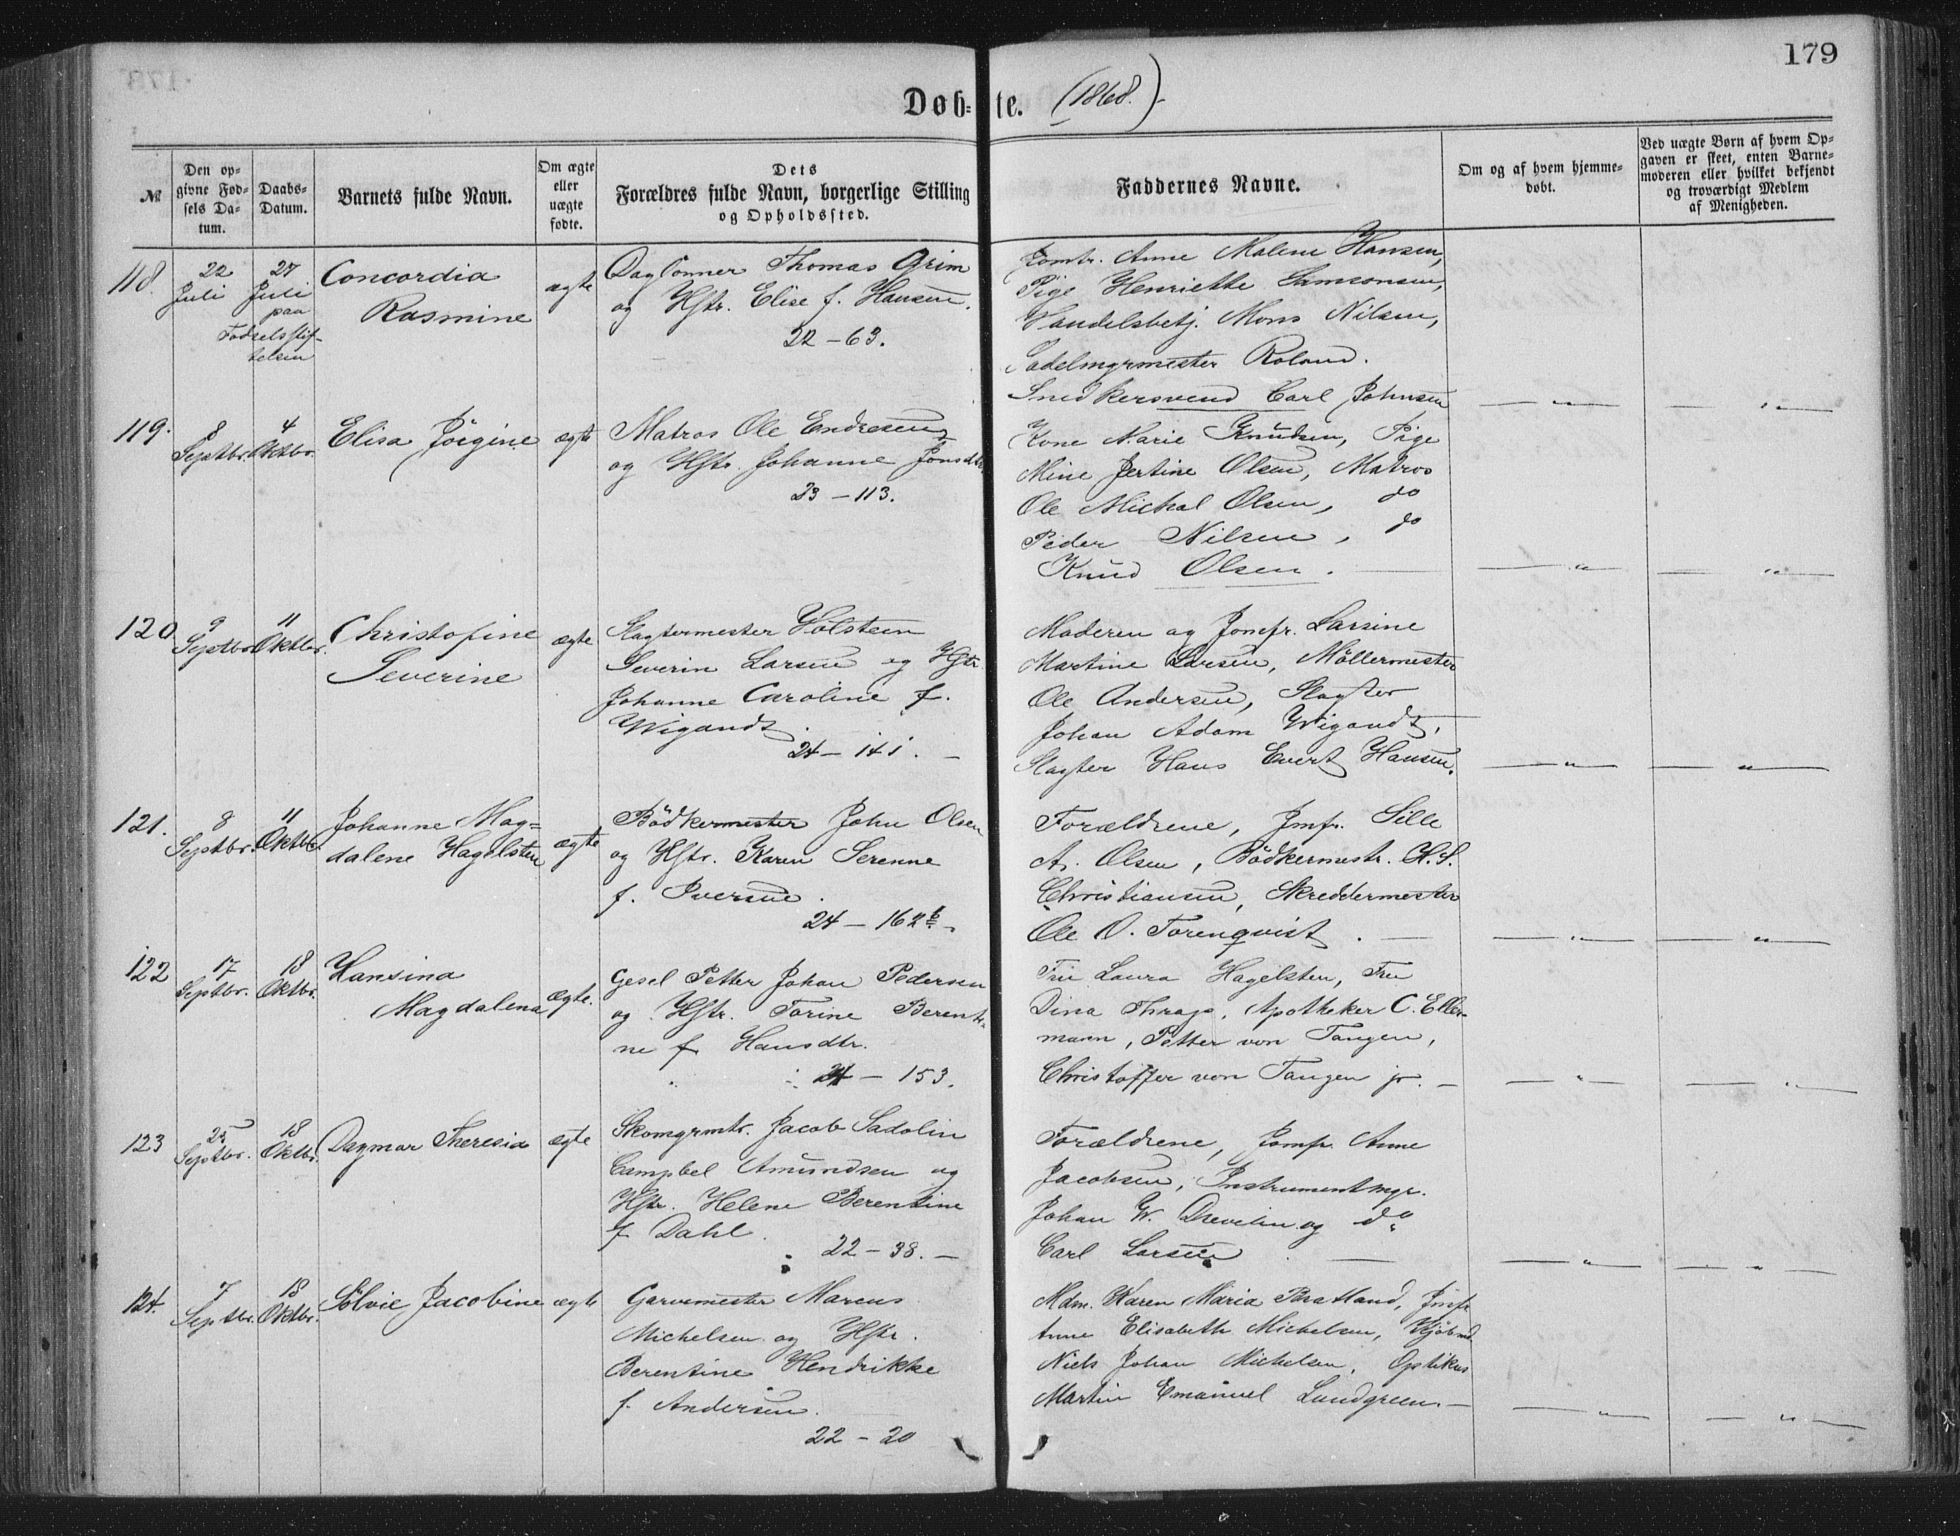 179
Døb-te. (1868.)
№
Den opgivne Fødsels Datum.
Daabs-Datum.
Barnets fulde Navn.
Om ægte eller uægte fødte.
Dets Forældres fulde Navn, borgerlige Stilling og Opholdssted.
Faddernes Navne.
Om og af hvem hjemmedøbt.
Ved uægte Børn af hvem Opgaven er skeet, enten Barnemoderen eller hvilket bekjendt og troværdigt Medlem af Menigheden.
118.
22 Juli
27 Juli paa Fødselsstiftelsen
Concordia
Rasmine
ægte
Daglönner Thomas Grim
og Hstr. Elise f. Hansen.
22-63.
Jomfr. Anne Malene Hansen,
Pige Henriette Samsonsen,
Handelsbetj. Mons Nilsen,
Sadelmgrmester Roland.
Snedkersvend Carl Johnsen
119.
8 Septbr.
4 Oktbr.
Elisa Jörgine
ægte
Matros Ole Endresen
og Hstr. Johanne Jonsdtr.
23-113.
Kone Marie Knudsen, Pige
Mine Jertine Olsen, Matros
Ole Michal Olsen, do
Peder Nilsen, do
Knud Olsen.
120
9 Septbr.
11 Oktbr.
Christofine
Severine
ægte
Slagtermester Holsteen
Severin Larsen og Hstr
Johanne Caroline f.
Wigandt.
24-141.
Moderen og Jomfr. Larsine
Martine Larsen, Möllermester
Ole Andersen, Slagter
Johan Adam Wigandt,
Slagter Hans Evert Hansen.
121.
8 Septbr.
11 Oktbr.
Johanne Mag-
dalene Hagelsten
ægte
Bödkermester John Olsen
og Hstr. Karen Serenne
f. Iversen.
24-162b.
Forældrene, Jmfr. Sille
A. Olsen, Bödkermestr. C.S.
Christiansen, Skreddermester
Ole O. Torenqvist.
122
17 Septbr.
18 Oktbr.
Hansina
Magdalena
ægte.
Gesel Petter Johan Pedersen
og Hstr. Torine Berenti-
ne f. Hansdtr.
24-153.
Fru Laura Hagelsten, Fru
Dina Thrap, Apotheker C. Eller-
mann, Petter von Tangen,
Christoffer von Tangen jr.
123
25 Septbr.
18 Oktbr.
Dagmar Theresia
ægte
Skomgrmtr. Jacob Sadolin
Campbel Amundsen og
Hstr. Helene Berentine
f. Dahl.
22-38.
Forældrene, Jomfr. Anne
Jacobsen, Instrumentmgr.
Johan W. Drevelin og do
Carl Larsen
124.
7 Septbr.
18 Oktbr.
Sölvie Jacobine
ægte
Garvemester Marcus
Michelsen og Hstr.
Berentine Hendrikke
f. Andersen.
22-20
Mdm. Karen Maria Bratland, Jmfr
Anne Elisabeth Michelsen, Kjöbmd
Niels Johan Michelsen, Optikus
Martin Emanuel Lundgreen.